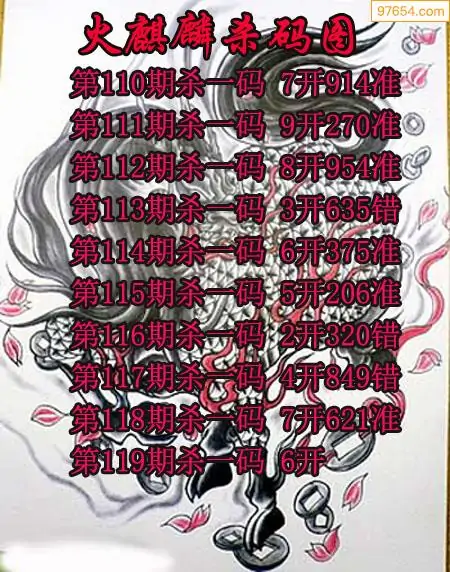 97654.com
火麒麟杀码图
第110期杀一码 7开914准
第111期杀一码 9开270准
第112期杀一码 8开954准
第113期杀一码 3开635错
第114期杀一码 6开375准
第115期杀一码 5开206准
第116期杀一码 2开320错
第117期杀一码 4开849错
第118期杀一码 7开621准
第119期杀一码 6开